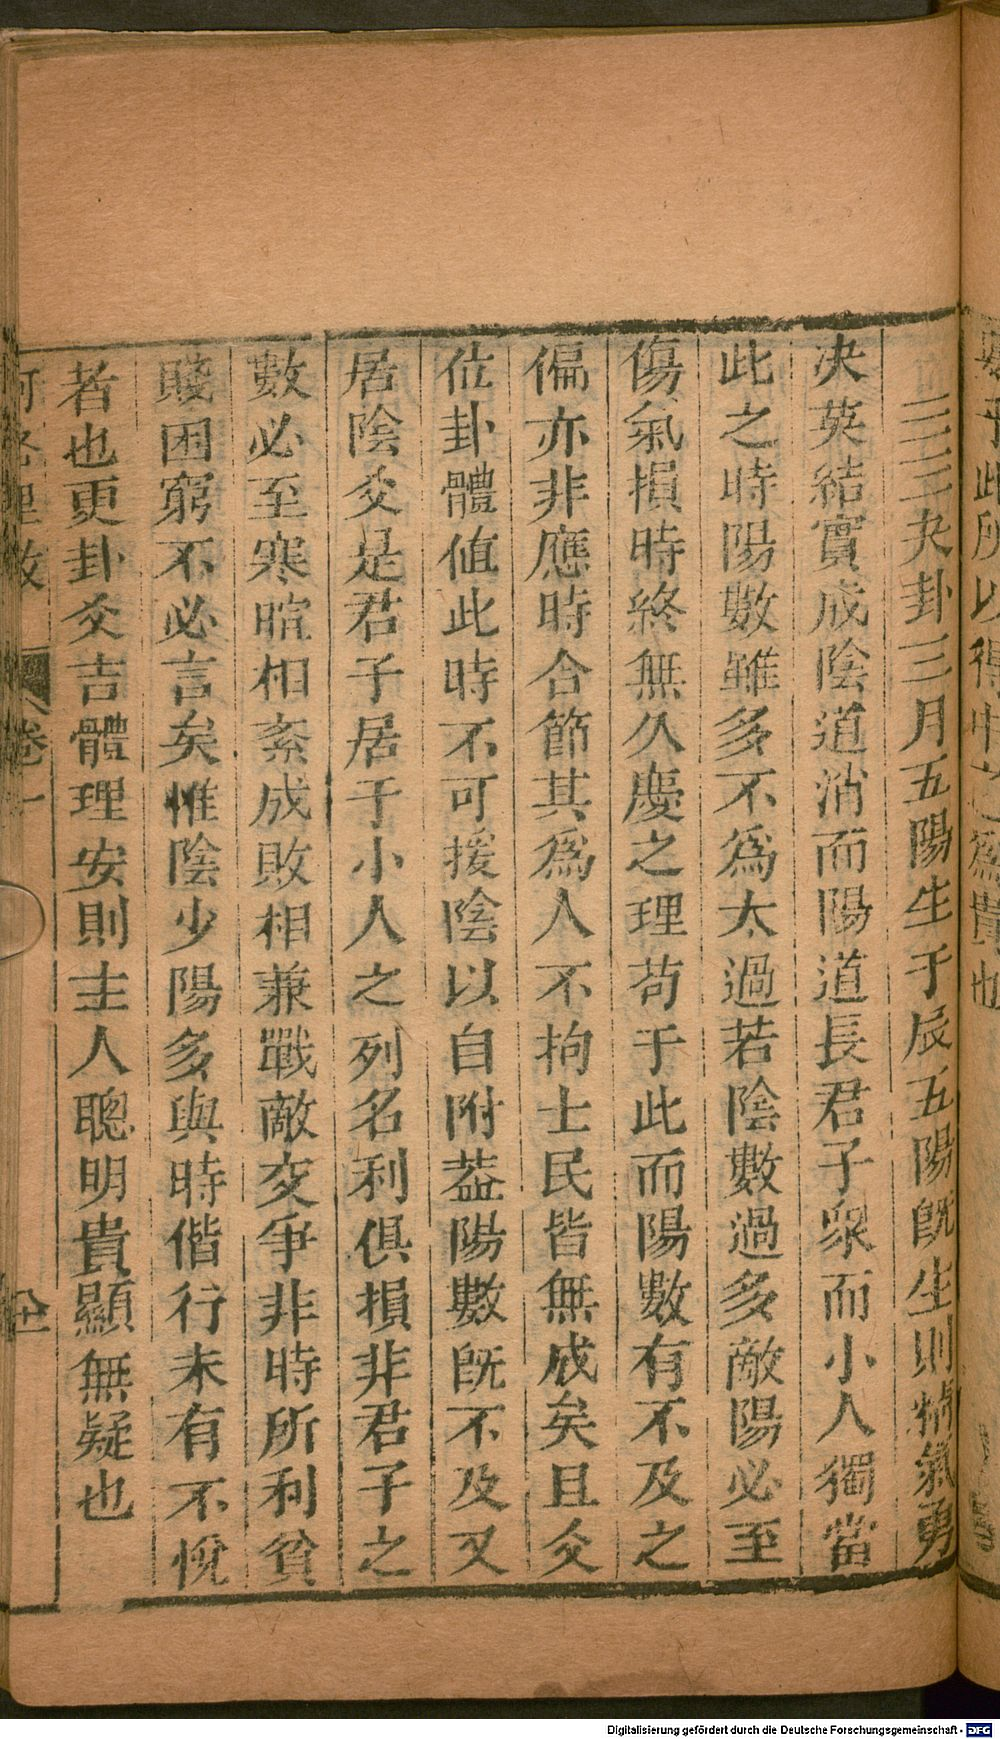 三三三夬卦三月五陽生于辰五陽旣生則精氣勇
决英結實成陰道消而陽道長君子衆而小人獨當
此之時陽數雖多不爲太過若陰數過多敵陽必至
傷氣損時終無久慶之理苟于此而陽數有不及之
偏亦非應時合節其爲人不拘士民皆無成矣且爻
位卦體値此時不可援陰以自附葢陽數旣不及又
居陰爻是君子居于小人之列名利俱損非君子之
數必至寒暄相紊成敗相兼戰敵交爭非時所利貧
賤困窮不必言矣惟陰少陽多與時偕行未有不悅
者也更卦爻吉體理安則主人聰明貴顯無疑也
卷一
Digitalisierung gefördert durch die Deutsche Forschungsgemeinschaft - DFG